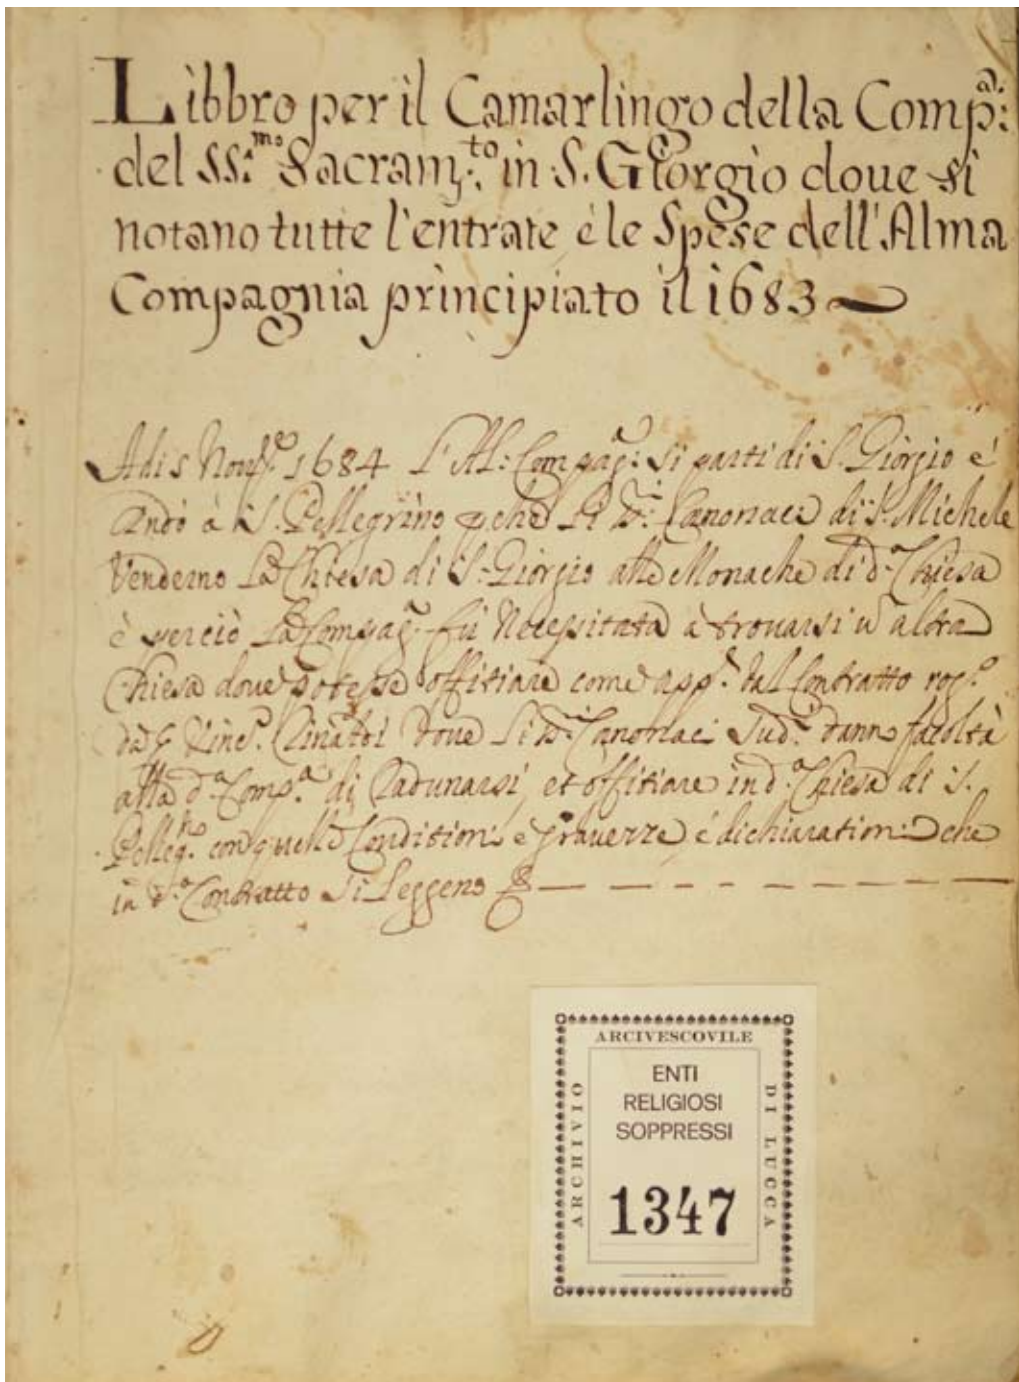 Libbro per il Camarlingo della Comp.a:
del SS.mo Sacram.to in S. Giorgio doue si
notano tutte l'entrate, è le Spese dell'Alma
Compagnia principiato il 1683
Adi 5 Nov.e 1684 L'Al: Compag: si parti di S. Giorgio è
Andò à S. Pellegrino pche Li Canonaci di S. Michele
Venderno La Chiesa di S. Giorgio alle Monache di d.a Chiesa
è perciò La Compag. fù Necessitata à trouarsi altra
Chiesa doue potesse offitiare come app.e dal Contratto rog.o
da doue Li Canonaci Sud.i danno facoltà
alla d.a Comp.a di Radunarsi, et offitiare in d.a Chiesa di S.
Pelleg.no con quelle Condition: è grauezze, è dichiaration: che
in d.o Contratto si Leggeno
ARCIVESCOVILE
ARCHIVIO
DI LUCCA
ENTI
RELIGIOSI
SOPPRESSI
1347